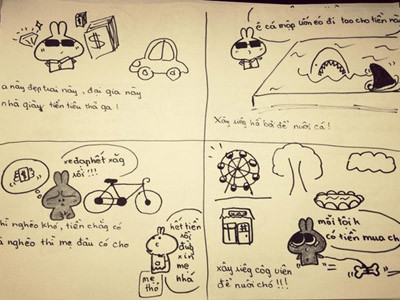 $
a này đẹp trai này, đại gia này
nhà giàu tiền tiêu thả ga!
ê cá mập uốn éo đi tao cho tiền nà
Xây riêg hồ bơi để nuôi cá!
redaphết xăg
rồi!!!
hì nghèo khó, tiền chẳg có
à nghèo thì mẹ đâu có cho
hết tiền
rồi
đưh
xin
mẹ
nhá
mẹ
thỏ
mỗi tội k
có tiền mua ch
xây riêg côg viên
để nuôi chó!!!